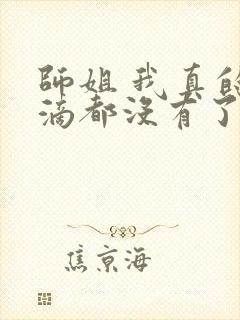 師姐我真的
滴都沒有了
焦京海